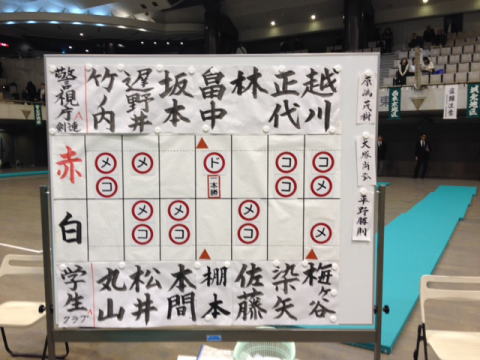 越川
正代
林
畠中
坂本
遅野井
竹ノ内
警視庁
剣道
コ
メ
コ
コ
ド
一本勝
メ
メ
コ
赤
メ
メ
コ
メ
コ
メ
コ
白
梅ヶ谷
染矢
佐藤
棚本
本間
松井
丸山
学生
クラブ
平野勝則
東